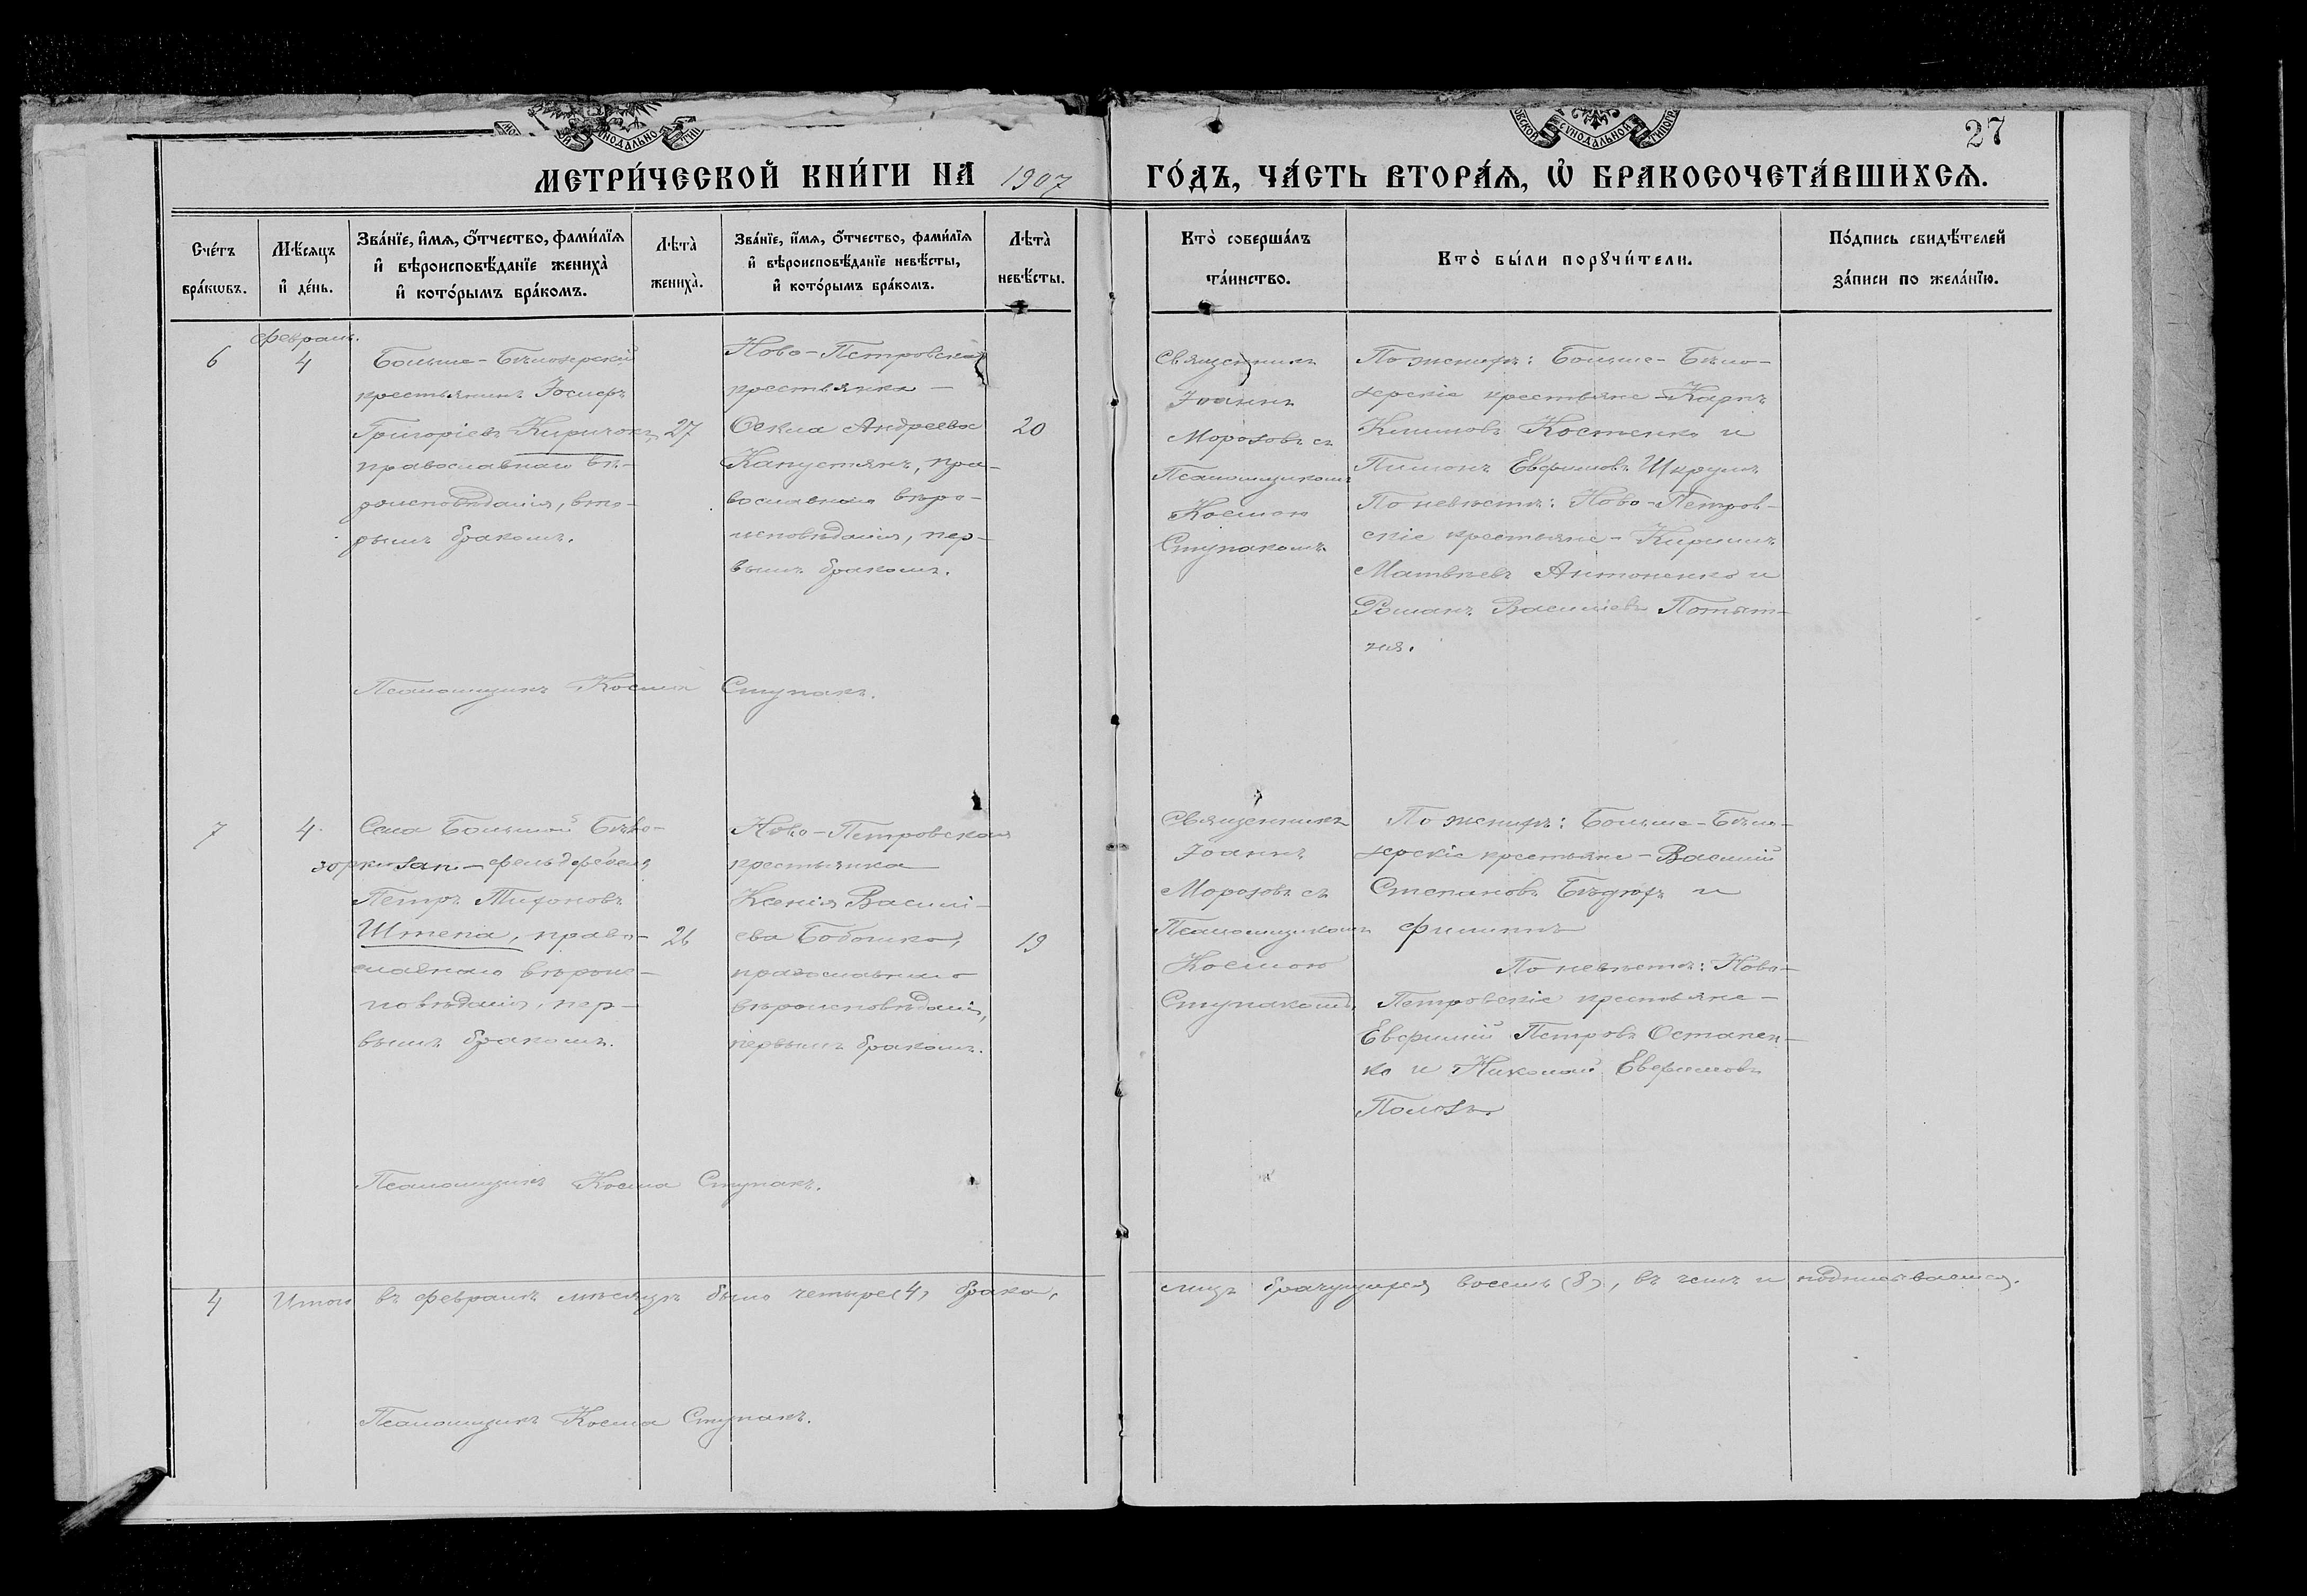 27
МЕТРИ́ЧЕСКОЙ КНИ́ГИ НА 1907 ГО́ДЪ, ЧА́СТЬ ВТОРА́Я, Ѡ҆ БРАКОСОЧЕТА́ВШИХСЯ.
Сче́тъ бра́кѡвъ.
Мѣ́сяцъ и҆ де́нь.
Зва́нїе, и҆́мѧ, ѻ҆́тчество, фами́лїѧ
и҆ вѣроисповѣ́данїе жениха̀
и҆ кото́рымъ бра́комъ.
Лѣта̀ жениха̀.
Зва́нїе, и҆́мѧ, ѻ҆́тчество, фами́лїѧ
и҆ вѣроисповѣ́данїе невѣ́сты,
и҆ кото́рымъ бра́комъ.
Лѣта̀ невѣ́сты.
Кто̀ соверша́лъ та́инство.
Кто̀ бы́ли порꙋчи́тели.
По́дпись свидѣ́телей
за́писи по жела́нїю.
февраль.
6
4
Больше-Бѣлозерскій
крестьянинъ Іосифъ
Григоріевъ Киричокъ,
православнаго вѣ-
роисповѣданія, вто-
рымъ бракомъ.
27
Ново-Петровская
крестьянка —
Ѳекла Андреева
Капустянъ, пра-
вославнаго вѣро-
исповѣданія, пер-
вымъ бракомъ.
20
Священникъ
Іоаннъ
Морозовъ съ
Псаломщикомъ
Космою
Ступакомъ.
По женихѣ: Больше-Бѣло-
зерскіе крестьяне - Карпъ
Климовъ Костенко и
Пимонъ Евфимовъ Шкрумъ
По невѣстѣ: Ново-Петров-
скіе крестьяне - Кириллъ
Матвѣевъ Антоненко и
Романъ Василіевъ Потят-
ня.
Псаломщикъ Косма Ступакъ.
7
4.
Села Большой Бѣло-
зорки зап. - фельдфебель
Петръ Тихоновъ
Штепа, право-
славнаго вѣроис-
повѣданія, пер-
вымъ бракомъ.
26
Ново-Петровская
крестьянка
Ксенія Василі-
ева Бобошко,
православнаго
вѣроисповѣданія,
первымъ бракомъ.
19
Священникъ
Іоаннъ
Морозовъ съ
Псаломщикомъ
Космою
Ступакомъ.
По женихѣ: Больше-Бѣло-
зерскіе крестьяне - Василій
Степановъ и
Филиппъ
По невѣстѣ: Ново-
Петровскіе крестьяне -
Евфимій Петровъ Остапен-
ко и Николай Евфимовъ
Полозъ.
Псаломщикъ Косма Ступакъ.
4 Итого въ февралѣ мѣсяцѣ было четыре (4) брака, лицъ брачущихся восемь (8), въ чемъ и подписываемся.
Псаломщикъ Косма Ступакъ.